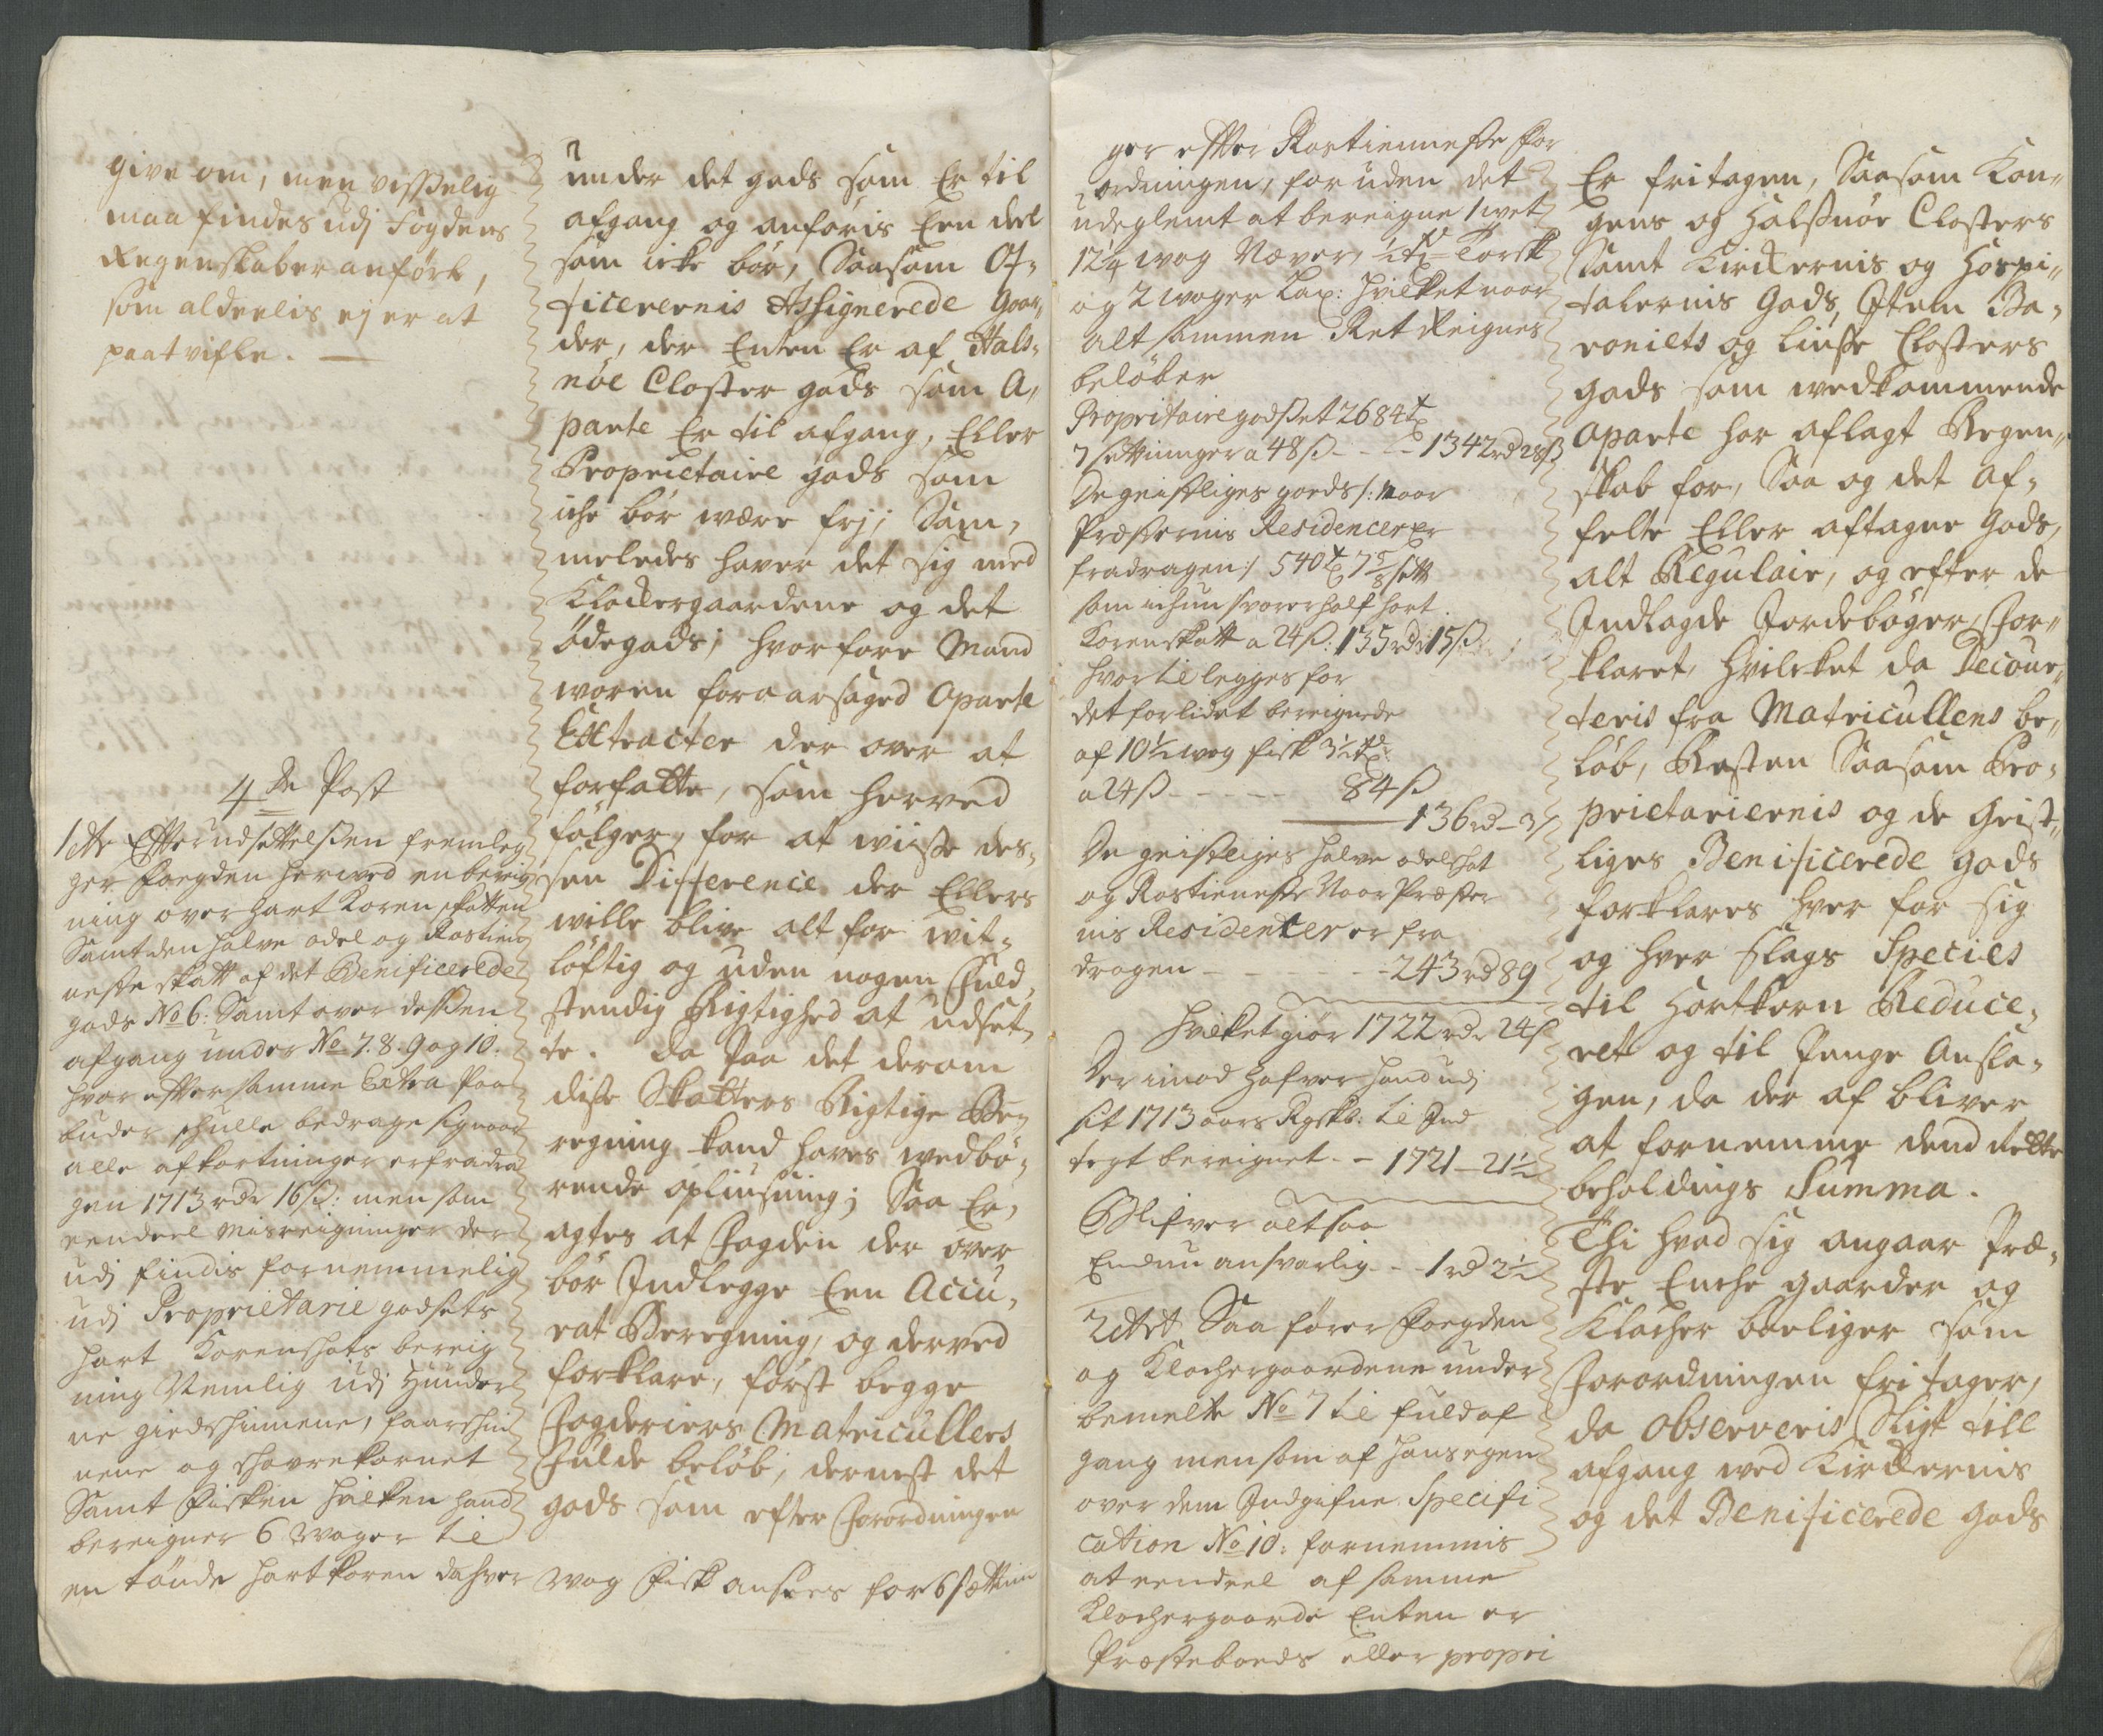 give om, men visselig
maa findes udj Fogdens
Regenskaber anført,
som alderlis ej er at
paatvifle. —
4de Post
1ste Efter udsettelsen fremleg
ger foegden herved en bereig
ning over hart Korenskatten
Samt den halve odel og Rostien
neste skatt af det Benificerede
gods No 6: Samt over dessen
afgang under No 7. 8. 9 og 10.
hvor efter samme Extra Paa
buder schulle bedrage sig naar
alle afkortninger er fradra
gen 1713 rdr 16 ß: men som
eendeel misreigninger der
udj findis fornemmelig
udj Proprietarie godsets
hart Korenshats bereig
ning Nemlig udj Hunder
ne giedshinnene, faarshin
nene og Havrekornet
Samt Fisken hvilken hand
bereigner 6 Woger til
en tønde hartkoren da hver
under det gods som Er til
afgang og anføris Een deel
som icke bør, Saasom Of-
ficerernis Assignerede Goar,
der, der Enten Er af Hals-
nöe Closter gods som A,
parte Er til afgang, Eller
Proprietaire gods som
iche bör være frj; Sam,
meledes haver det sig med
Klockergaardene og det
ödegods; hvorfore Mand
woren foraarsaged aparte
Extracter der over at
forfatte, som herved
følger, for at wiisse des-
sen Difference der Ellers
wille blive alt for wit-
løftig og uden nogen fuld,
stendig Rigtighed at udset,
te. da Paa det derom
disse Skatters Rigtige Be,
regning kand haves wedbø-
rende opliusning; Saa Er,
agtes at Fogden der over
bör Indlegge Een Accu,
rat Beregning, og derved
forklare, først begge
Fogderiers Matricullers
fulde beløb, dernest det
gods som efter Forordningen
Wog Fisk ansees for 6 settin
ger efter Rostienneste for
ordningen, foruden det
udeglemt at bereigne 1 wet
12¼ wog Næver, ½ td Torsk
og 2 woger Lax: hvilket naar
alt sammen Ret Reignes
beløber
Propritaire godset 2684 td
7 settninger a 48 ß - - - 1342 rd 28 ß
De geistliges goeds /: Naar
Præsternis Residencer Er
fradragen :/ 540 td 7⅝ sett
som ichun svarer half hart
Korenskatt a 24 ß: 135 rdr 15 ß
hvortil legges for
det forlidet bereignede
af 10½ wog fisk 3½ td:
a 24 ß - - - - - 84 ß
136 rd - 3 ß
De geistliges halve odelshat
og Rostieneste Naar Præster
nis Residentzer er fra
dragen - - - - - 243 rd 89
hvilket giør 1722 rdr 24 ß
Der imod Hafver hand udj
sit 1713 aars Rgskb: til Ind
tegt bereignet - - 1721 - 21½
Blifver altsaa
Endnu ansvarlig - - 1 rd 2½
2det Saa fører foegden
og Klochergaardene under
bemelte No 7 til fuld af
gang men som af hans egen
over dem Indgifne Specifi
cation No 10: fornemmis
at eendeel af samme
Klochergaarde Enten er
Præsteboeds eller propri
Er fritagen, Saasom Kon-
gens og Halssnöe Closters
Samt Kirckernis og Hospi-
talernis Gods, Item Ba-
roniets og Liusse Closters
gods som wedkommende
aparte har aflagt Regen-
skab for, Saa og det af-
felte Eller aftagne Gods,
alt Regulair, og efter de
Indlagde Jordebøger, For-
klaret, hvilcket da Decour-
teris fra Matricullens be-
løb, Resten Saasom Pro-
prietariernis og de Geist-
liges Benificerede gods
forklares hver for sig
og hver slags Species
til Hartkorn Reduce-
ret og til Penge Ansla-
gen, da der af bliver
at fornemme dend rette
beholdings Summa.
Thi hvad sig angaar Præ-
ste Enche gaarder og
Klocher boeliger som
Forordningen fritager,
da observeris Sligt till
afgang wed Kirckernis
og det Benificerede gods